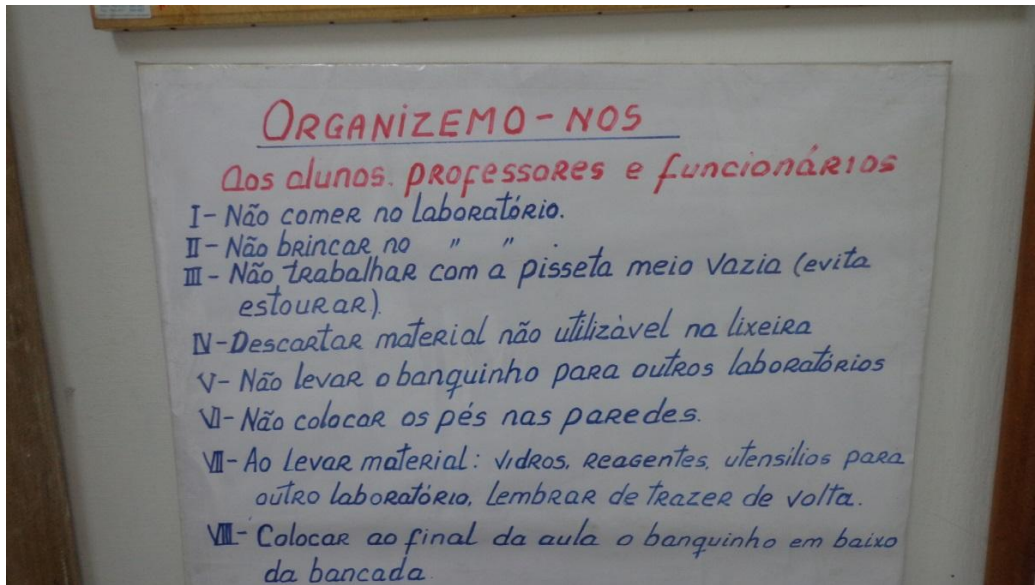 ORGANIZEMO-NOS
Aos alunos. professores e funcionários
I- Não comer no laboratório.
II- Não brincar no " "
III- Não trabalhar com a pisseta meio vazia (evita
estourar).
IV- Descartar material não utilizàvel na lixeira
V- Não levar o banquinho para outros laboratórios
VI- Não colocar os pés nas paredes.
VII- Ao Levar material: vidros, reagentes, utensílios para
outro laboratório, Lembrar de trazer de volta.
VIII- Colocar ao final da aula o banquinho em baixo
da bancada